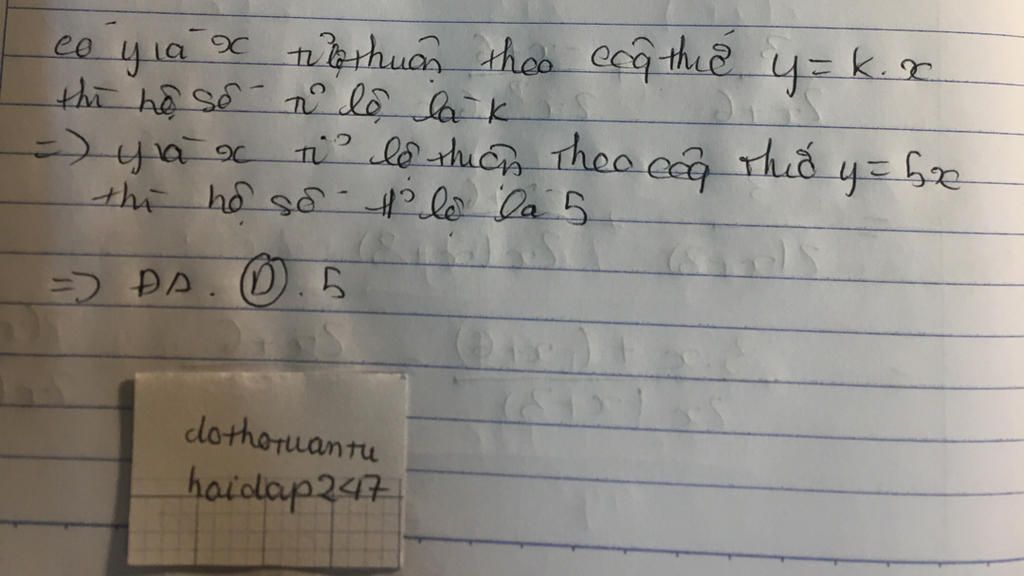 có y và x tỉ lệ thuận theo công thức y = k.x
thì hệ số tỉ lệ là k
=> y và x tỉ lệ thuận theo công thức y = 5x
thì hệ số tỉ lệ là 5
=> ĐA. D. 5
dothotuantu
hoidap247